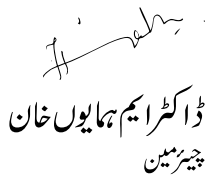 ڈاکٹر ایم ہمایوں خان
چیئرمین